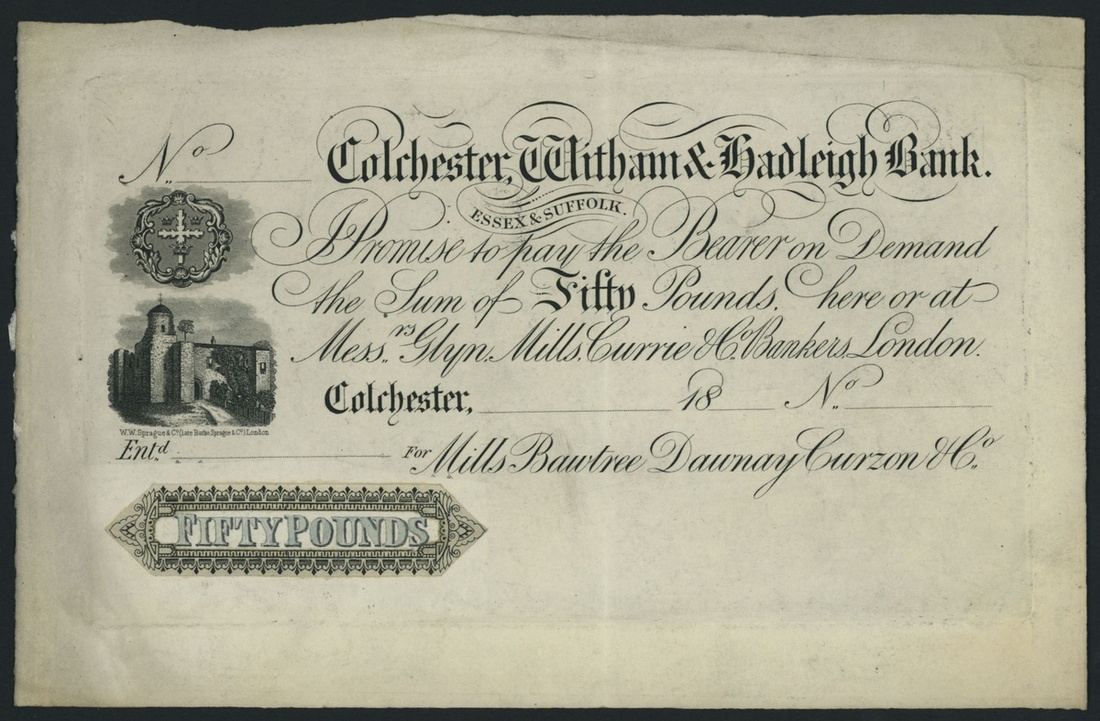 No
Colchester, Witham & Hadleigh Bank.
ESSEX & SUFFOLK.
I Promise to pay the Bearer on Demand
the Sum of Fifty Pounds, here or at
Messrs Glyn, Mills, Currie & Co Bankers, London.
Colchester, 18 No
W.W. Sprague & Co (late Barber Sprague & Co) London
Entd For Mills Bawtree Dawnay Curzon & Co
FIFTY POUNDS